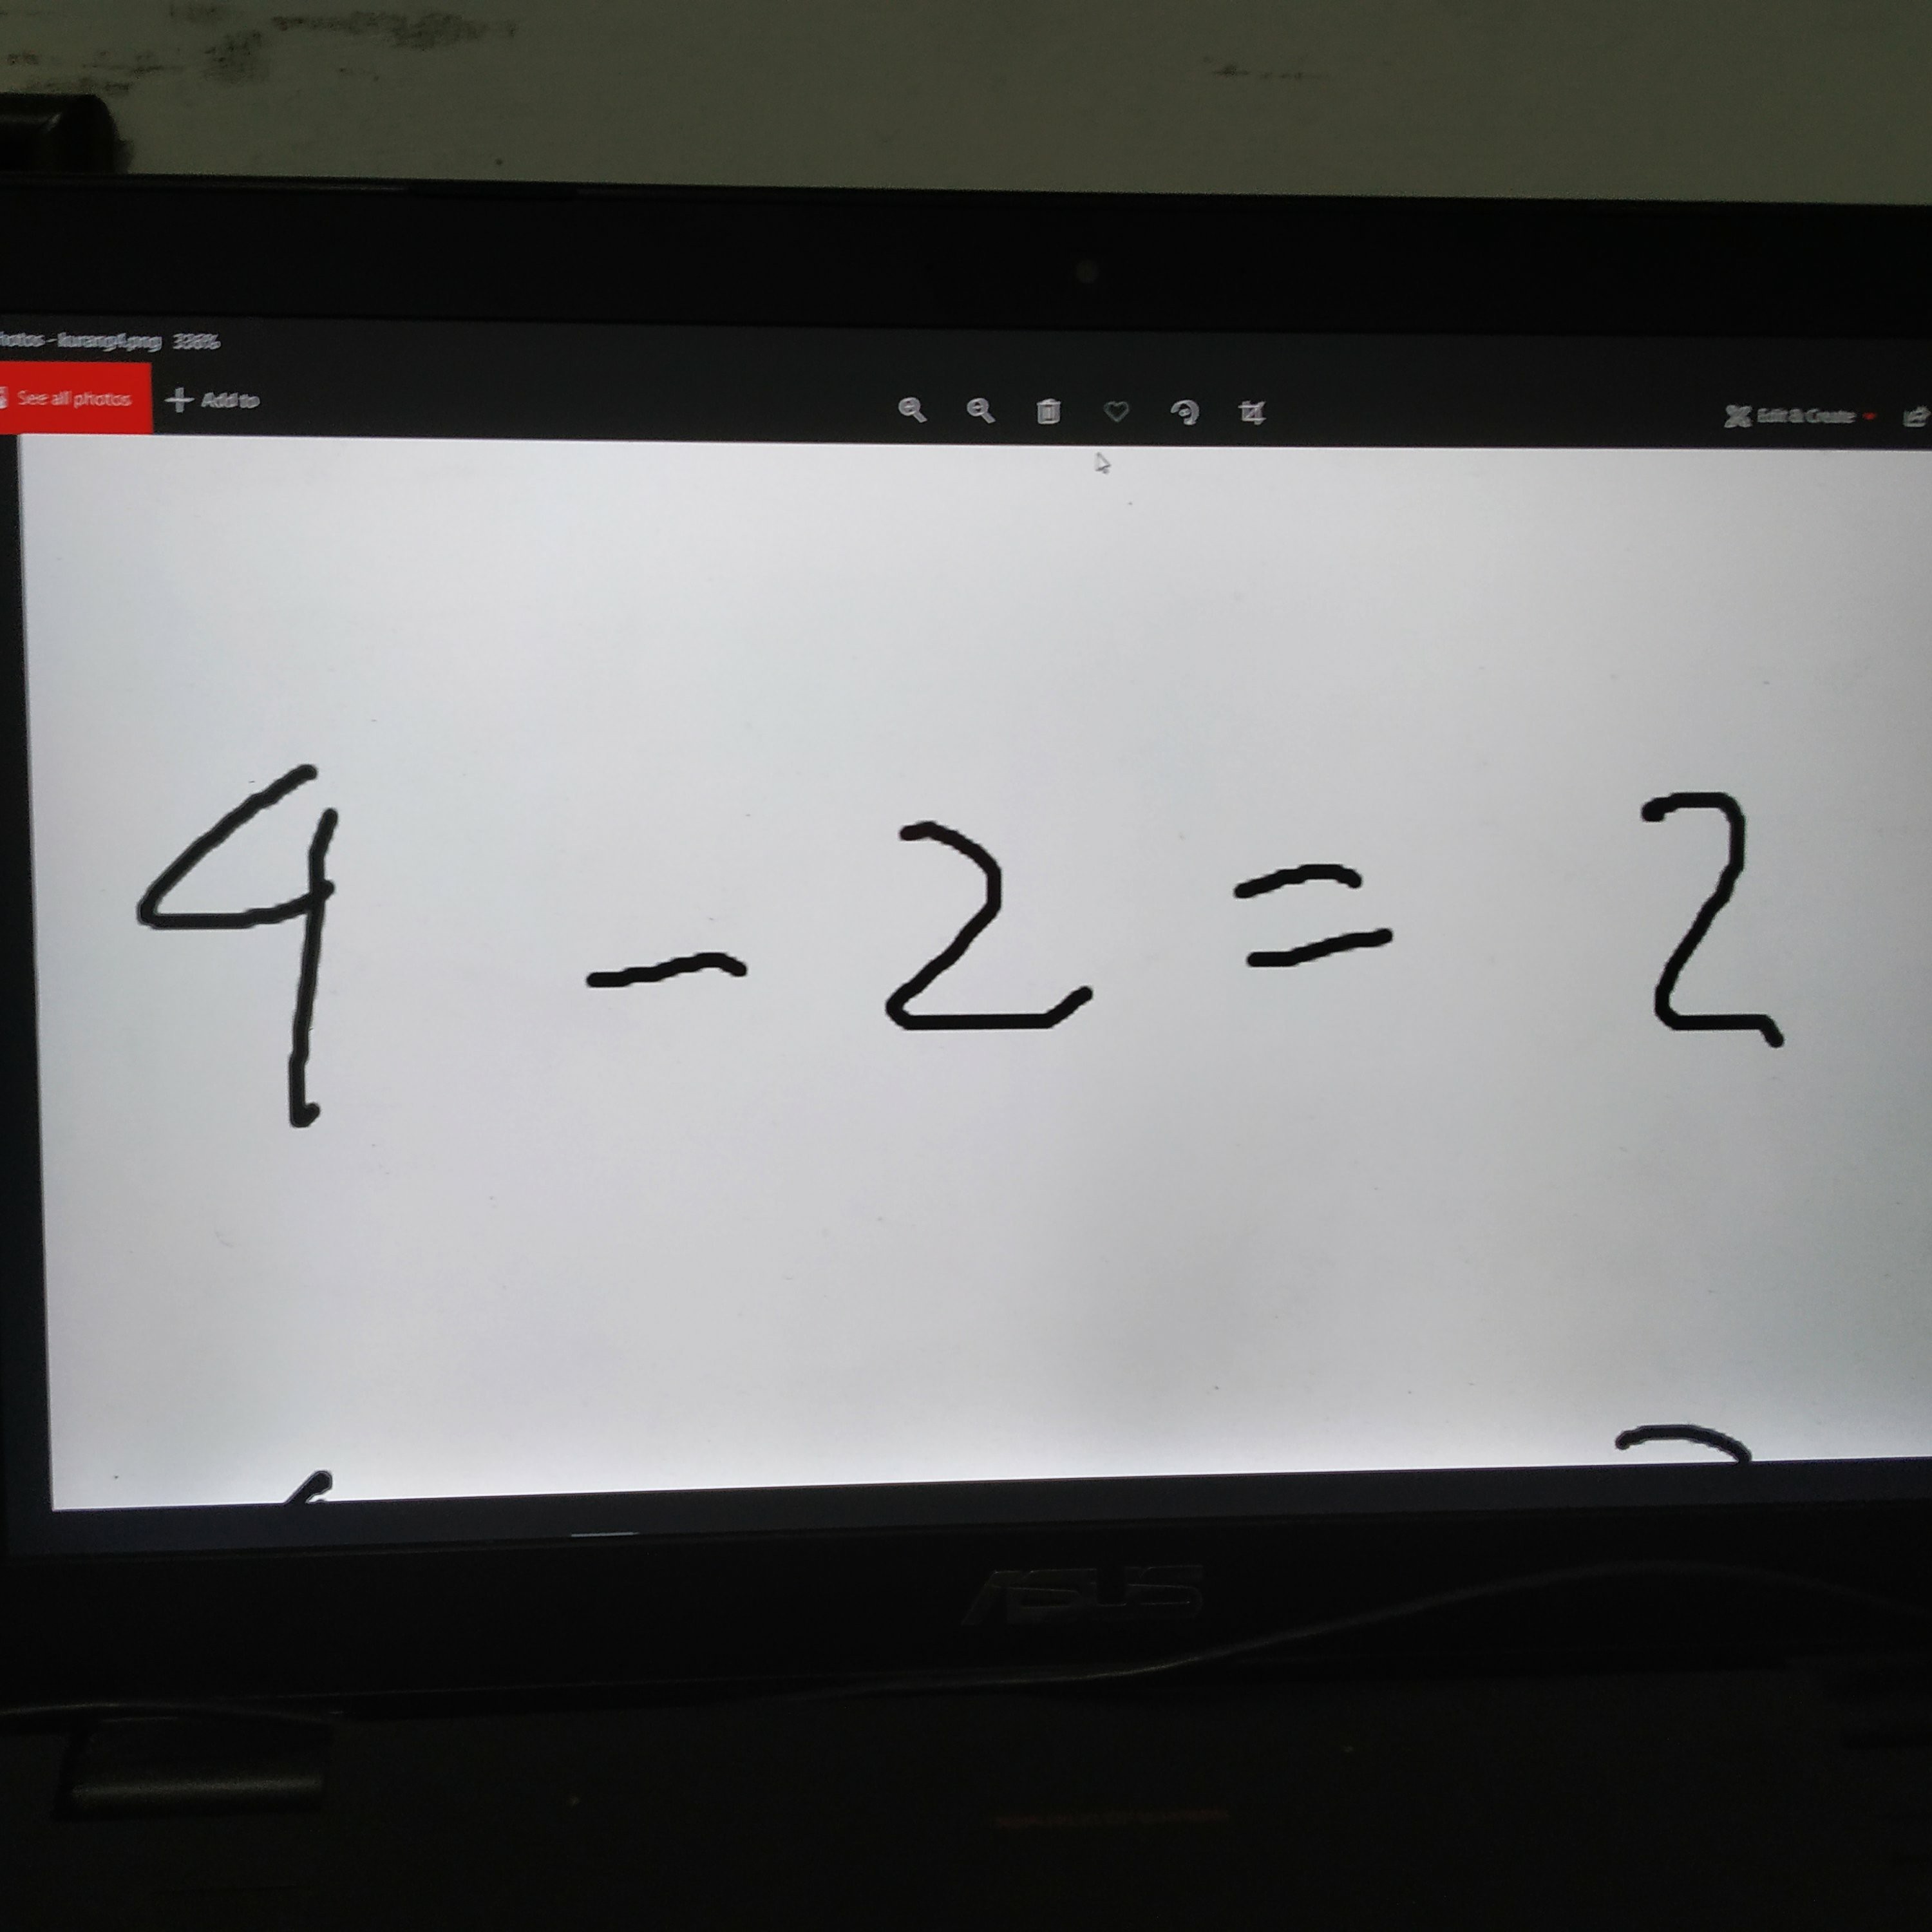 kurang4.png 336%
See all photos
Add to
Edit & Create
4 - 2 = 2
ASUS